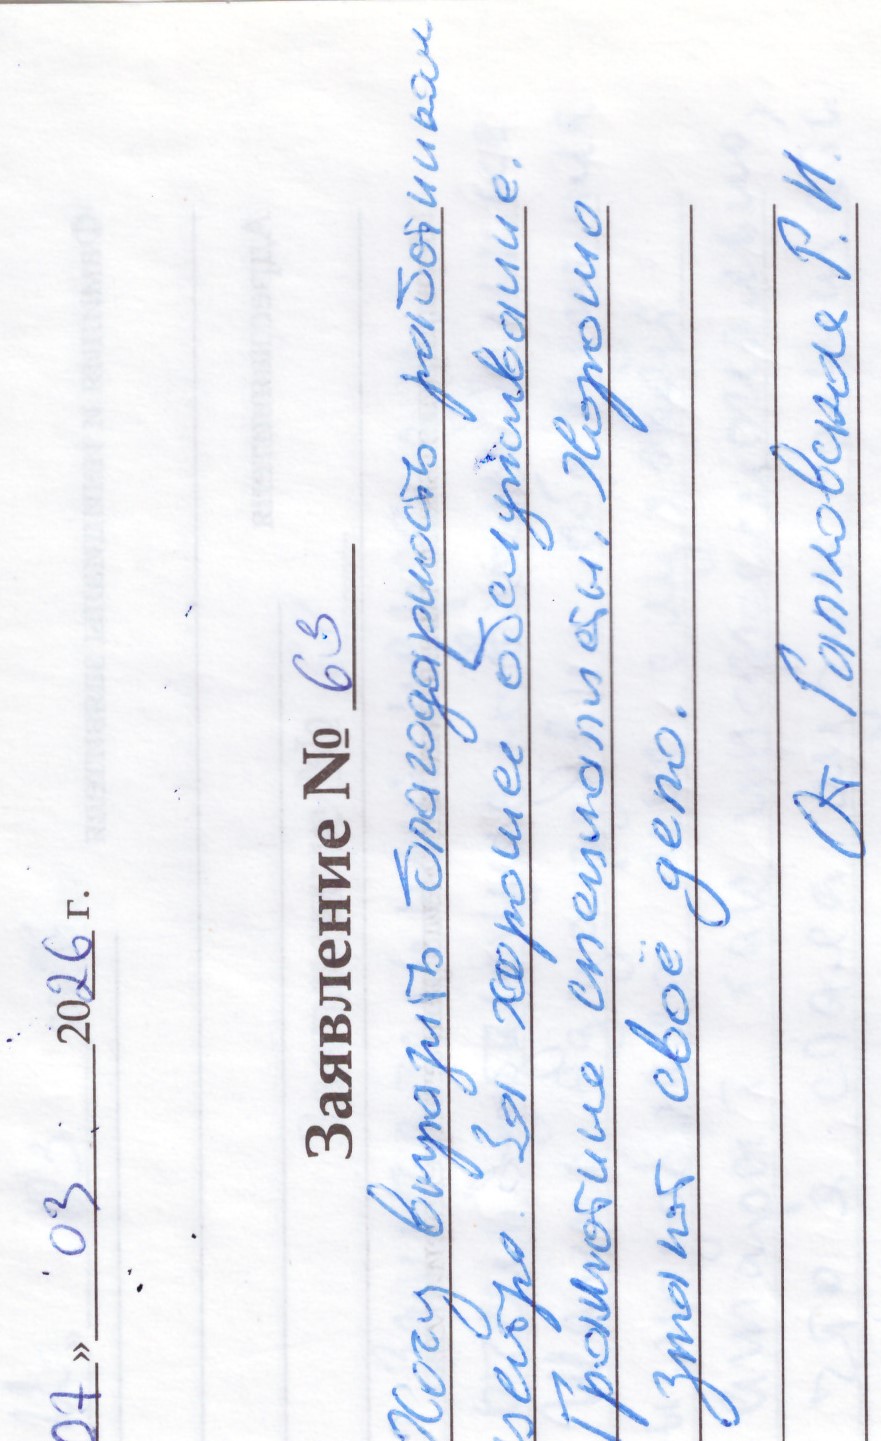 07 » 03 2026 г.
Заявление № 63
Хочу выразить благодарность работникам
центра. За хорошее обслуживание.
Грамотные специалисты, Хорошо
знают своё дело.
От Р.И.